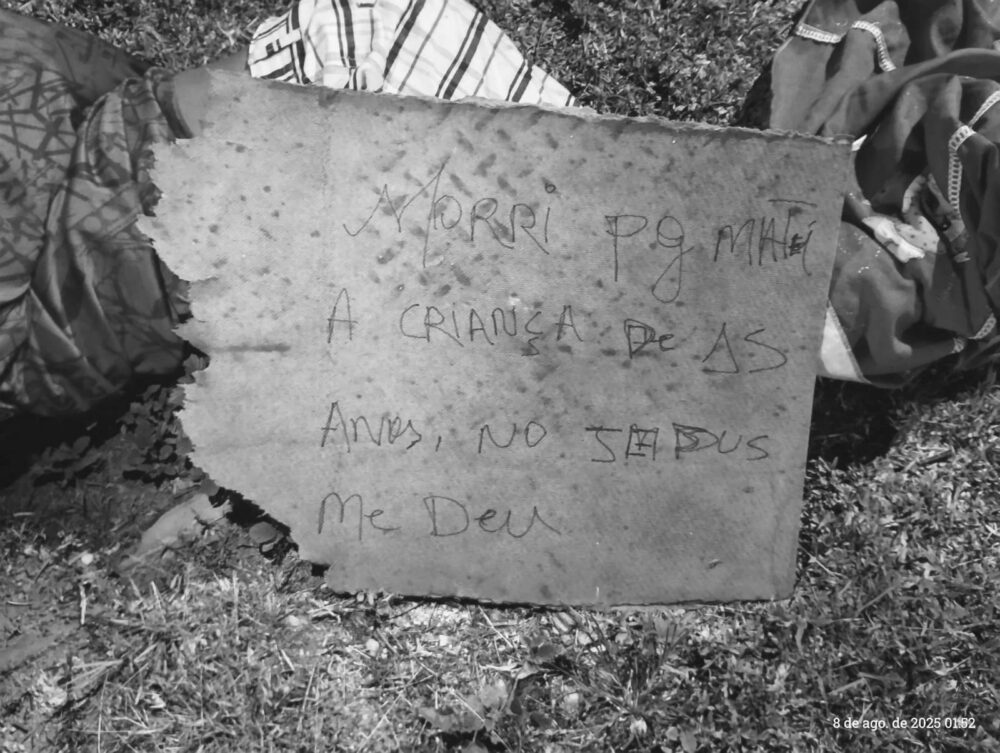 MORRI PQ MATEI
A CRIANÇA De 15
ANOS, NO
Me Deu
8 de ago. de 2025 01:52